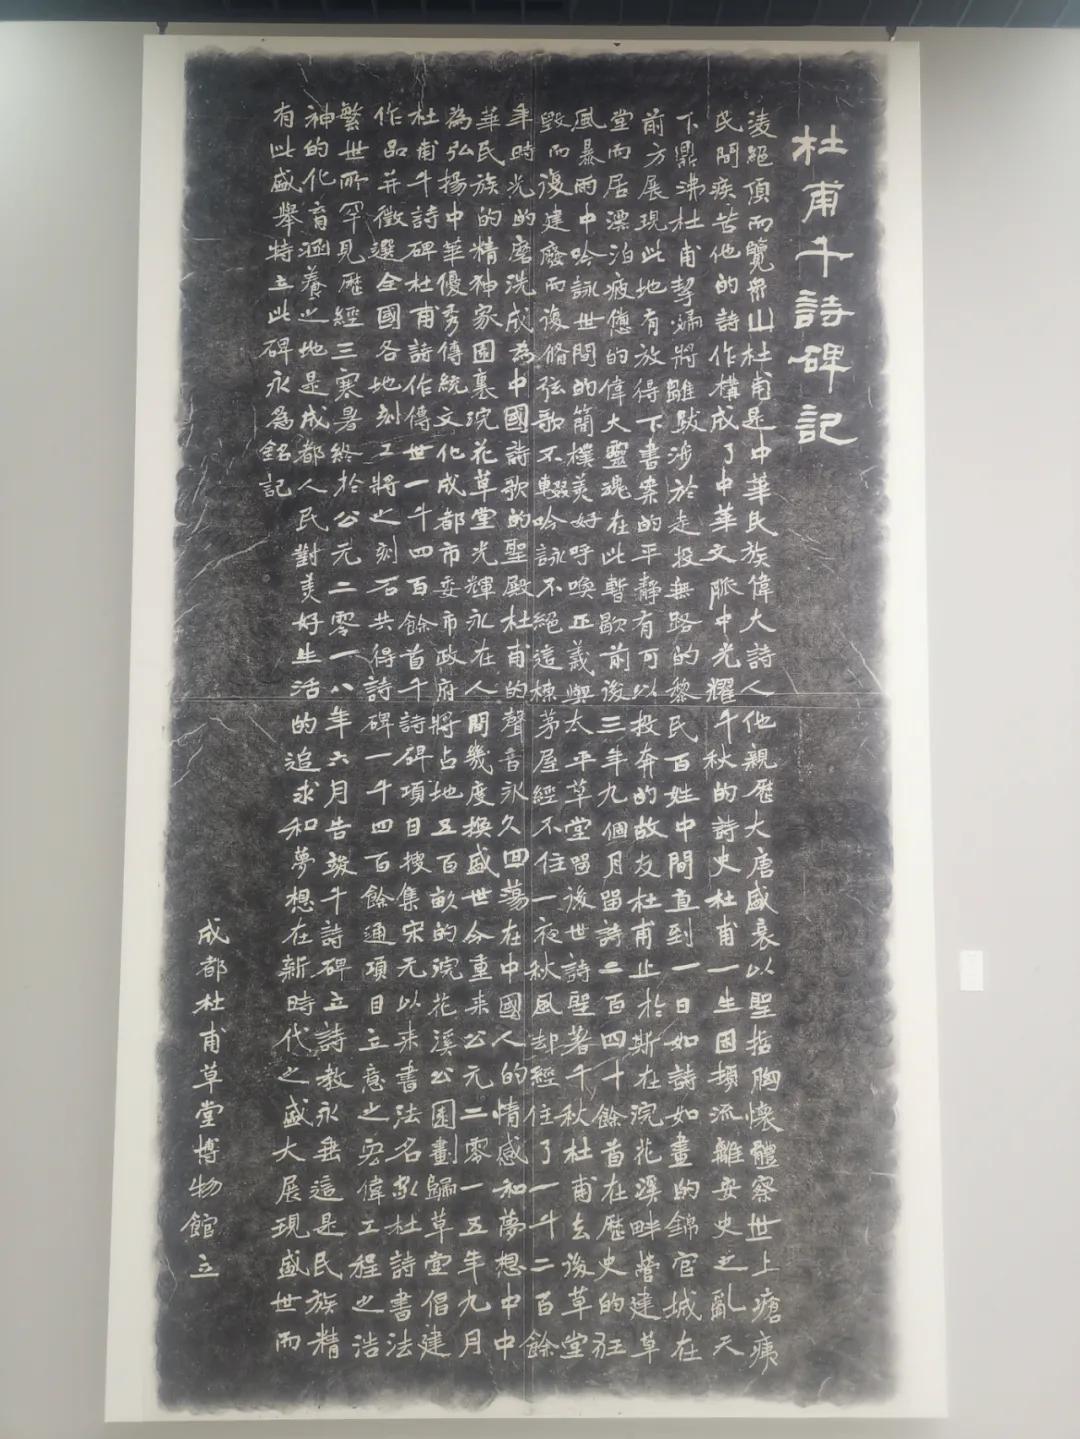 杜甫千詩碑記
凌絕頂而覽衆山杜甫是中華民族偉大詩人他親歷大唐盛衰以聖哲胸懷體察世上瘡痍
民間疾苦他的詩作構成了中華文脈中光耀千秋的詩史杜甫一生困頓流離安史之亂天
下鼎沸杜甫挈婦將雛跋涉於走投無路的黎民百姓中間直到一日如詩如畫的錦官城在
前方展現此地有放得下書案的平靜有可以投奔的故友杜甫止於斯在浣花溪畔營建草
堂而居漂泊疲憊的偉大靈魂在此暫歇前後三年九個月留詩二百四十餘首在歷史的狂
風暴雨中吟詠世間的簡樸美好呼喚正義與太平草堂留後世詩聖著千秋杜甫去後草堂
毀而復建廢而復脩弦歌不輟吟詠不絕這棟茅屋經不住一夜秋風却經住了一千二百餘
年時光的磨洗成為中國詩歌的聖殿杜甫的聲音永久回蕩在中國人的情感和夢想中中
華民族的精神家園裏浣花草堂光輝永在人間幾度換盛世今重来公元二零一五年九月
為弘揚中華優秀傳統文化成都市委市政府將占地五百畝的浣花溪公園劃歸草堂倡建
杜甫千詩碑杜甫詩作傳世一千四百餘首千詩碑項目搜集宋元以来書法名家杜詩書法
作品并徵選全國各地刻工將之刻石共得詩碑一千四百餘通項目立意之宏偉工程之浩
繁世所罕見歷經三寒暑終於公元二零一八年六月告竣千詩碑立詩教永垂這是民族精
神的化育涵養之地是成都人民對美好生活的追求和夢想在新時代之盛大展現盛世而
有此盛舉特立此碑永為銘記
成都杜甫草堂博物館立